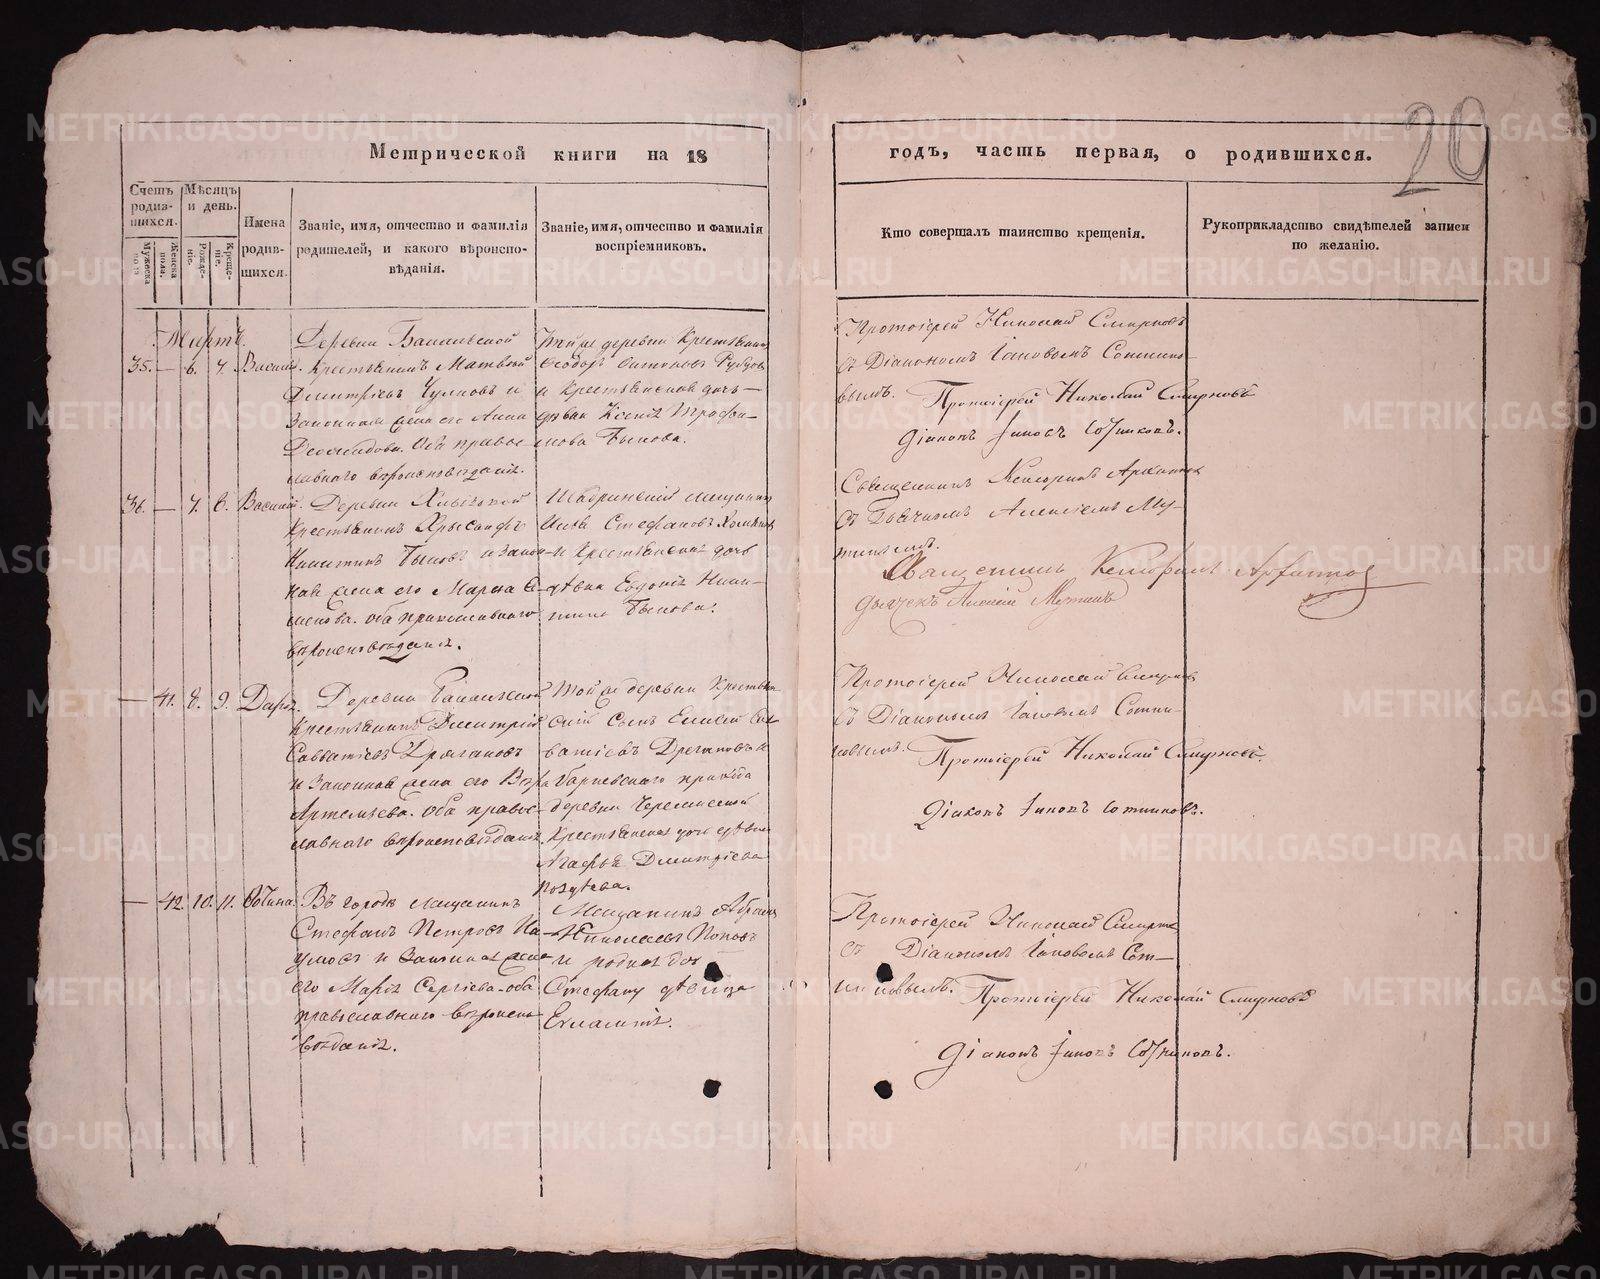 Метрической книги на 18
годъ, часть первая, о родившихся.
20
Счетъ родив-шихся.
Мѣсяцъ и день.
Мужеска пола
Женска пола.
Рожде-ніе.
Креще-ніе.
Имена родив-шихся.
Званіе, имя, отчество и фамилія
родителей, и какого вѣроиспо-
вѣданія.
Званіе, имя, отчество и фамилія
воспріемниковъ.
Кто совершалъ таинство крещенія.
Рукоприкладство свидѣтелей записи
по желанію.
Мартъ.
35. — 6. 7. Василій.
Деревни
Крестьянинъ Матвѣй
Дмитріевъ и
Законная жена его Анна
Оба правос-
лавнаго вѣроисповѣданія.
Той же деревни Крестьянинъ
Ѳеодоръ
и Крестьянская дочь
дѣвка Ксенія Трофи-
мова Быкова.
Протоіерей Николай Смирновъ
съ Діакономъ Іаковомъ Сотнико-
вымъ.
Протоіерей Николай Смирновъ
Діаконъ Іаковъ Сотниковъ.
36. — 7. 8. Василій.
Деревни
Крестьянинъ Хрисанфъ
Никитинъ Быковъ и закон-
ная жена его Марѳа
оба православнаго
вѣроисповѣданія.
Шадринскій мещанинъ
Стефановъ
и Крестьянская дочь
дѣвка Евдокія Ники-
тина Быкова.
Священникъ
съ Дьячкомъ Алексіемъ
Священникъ
Дьячекъ Алексій
— 41. 8. 9. Дарья.
Деревни
Крестьянинъ Димитрій
Савватіевъ Дрягановъ
и Законная жена его Вѣра
Артемьева. Оба правос-
лавнаго вѣроисповѣданія.
Той же деревни Крестьян-
скій сынъ Елисей Сав-
ватіевъ Дрягановъ и
прихода
деревни Черемисской
Крестьянская дочь дѣвка
Агафья Димитріева
Протоіерей Николай Смирновъ
съ Діакономъ Іаковомъ Сотни-
ковымъ.
Протоіерей Николай Смирновъ.
Діаконъ Іаковъ Сотниковъ.
— 42. 10. 11.
Въ городѣ мещанинъ
Стефанъ Петровъ На-
умовъ и Законная жена
его Марія Сергіева оба
православнаго вѣроиспо-
вѣданія.
Мещанинъ
Николаевъ Поповъ
и родная дочь
Стефану дѣвица
Евлампія.
Протоіерей Николай Смирновъ
съ Діакономъ Іаковомъ Сот-
никовымъ.
Протоіерей Николай Смирновъ
Діаконъ Іаковъ Сотниковъ.
METRIKI.GASO-URAL.RU